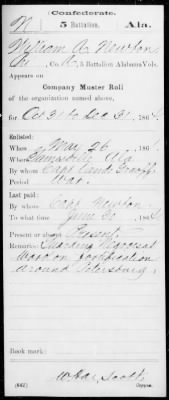 Confederate.
N 5 Battalion, Ala.
William A. Newton
Co. A, 5 Battalion Alabama Vols.
Appears on
Company Muster Roll
of the organization named above,
for Oct 31 to Dec 31, 1864.
Enlisted:
When May 26, 186
Where Ala
By whom Capt
Period War
Last paid:
By whom Capt Newton
To what time June 30, 1864
Present or absent Present
Remarks: Guarding Negroes at
work on fortification
around Petersburg
Book mark:
Scott
(642) Copyist.